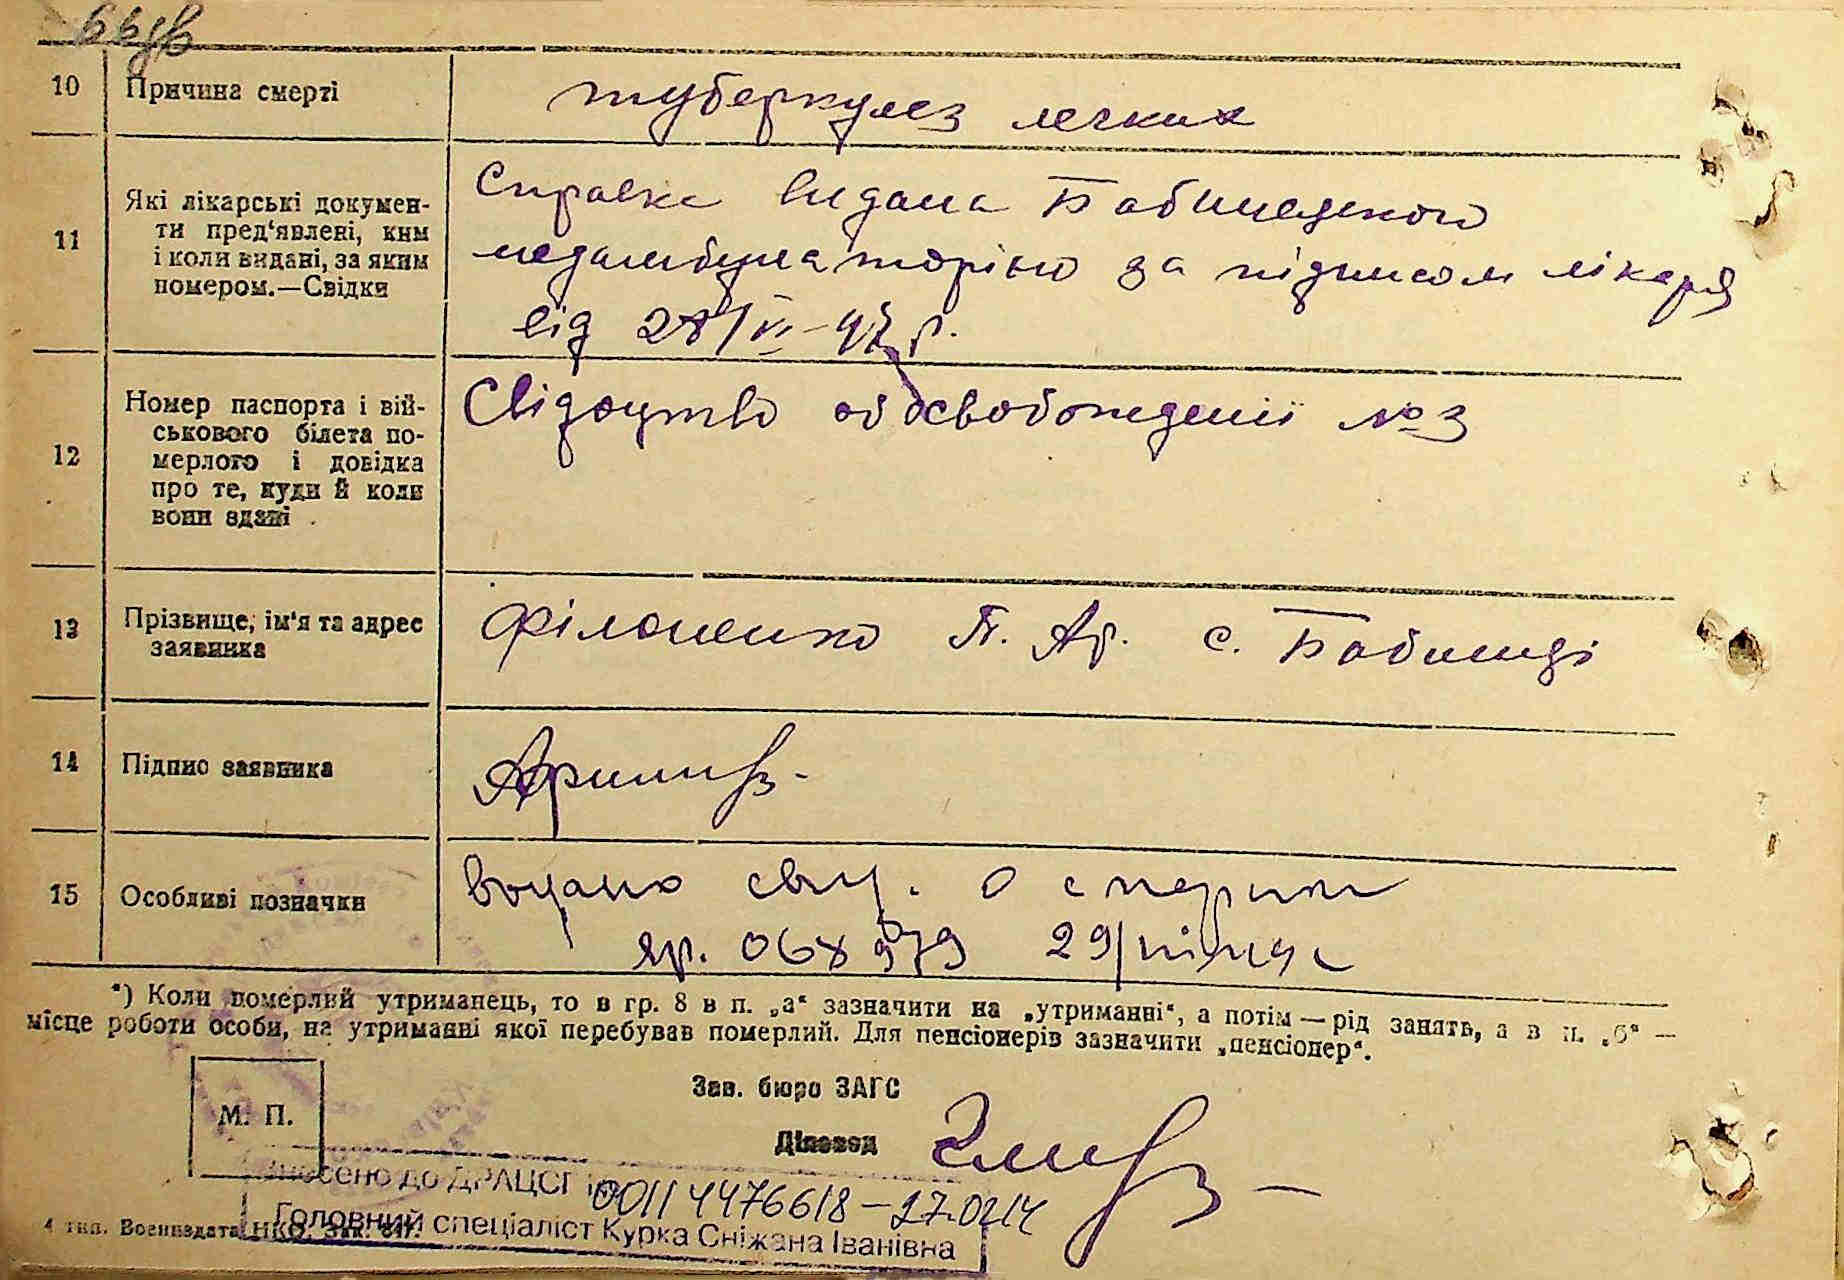 10 Причина смерті
туберкулез легких
11 Які лікарські докумен-
ти пред'явлені, ким
і коли видані, за яким
номером.—Свідки
Справка видана Бабинецкого
медамбулаторією за підписом лікаря
від 28/VI-47 р.
12 Номер паспорта і вій-
ськового білета по-
мерлого і довідка
про те, куди й коли
вони здані
Свідоцтво об освобождении №3
13 Прізвище, ім'я та адрес
заявника
Філоненко П. Ар. с. Бабинці
14 Підпис заявника
15 Особливі позначки
свид. о смерти
яр. 068979 29/
*) Коли померлий утриманець, то в гр. 8 в п. „а“ зазначити на „утриманні“, а потім — рід занять, а в п. „б“ —
місце роботи особи, на утриманні якої перебував померлий. Для пенсіонерів зазначити „пенсіонер“.
Зав. бюро ЗАГС
М. П.
Діловод
внесено до ДРАЦСГ 00114476618–27.02.14
Головний спеціаліст Курка Сніжана Іванівна
4 тип. Воениздата НКО. Зак. 647.